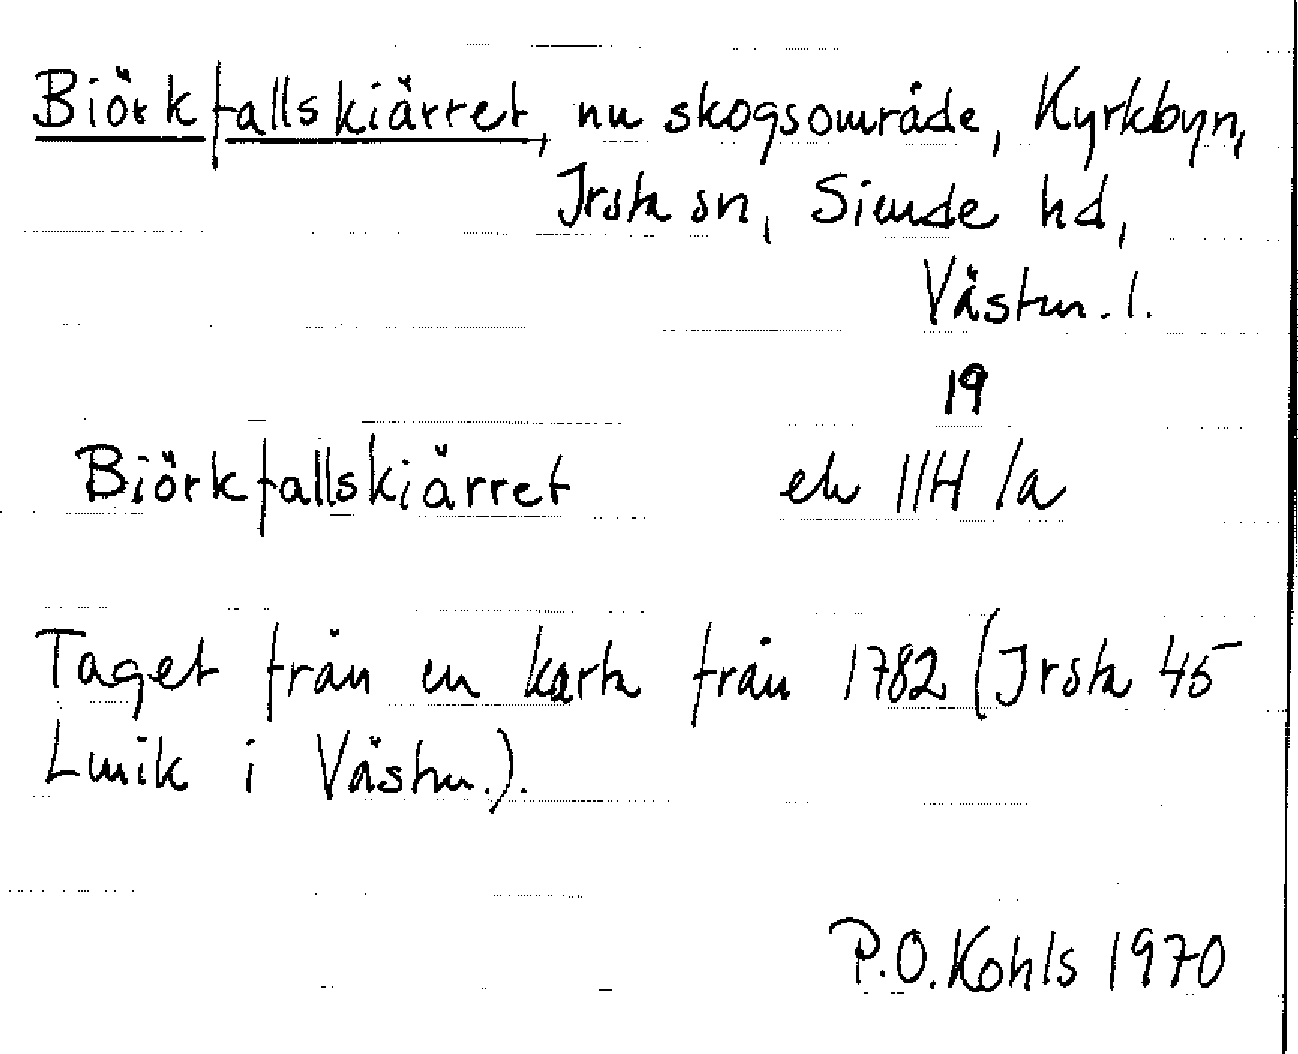 Biörkfallskiärret, nu skogsområde, Kyrkbyn,
Irsta sn, Siende hd,
Västm. l.
19
Biörkfallskiärret ek 11H 1a
Taget från en karta från 1782 (Irsta 45
Lmik i Västm.).
P.O. Kohls 1970